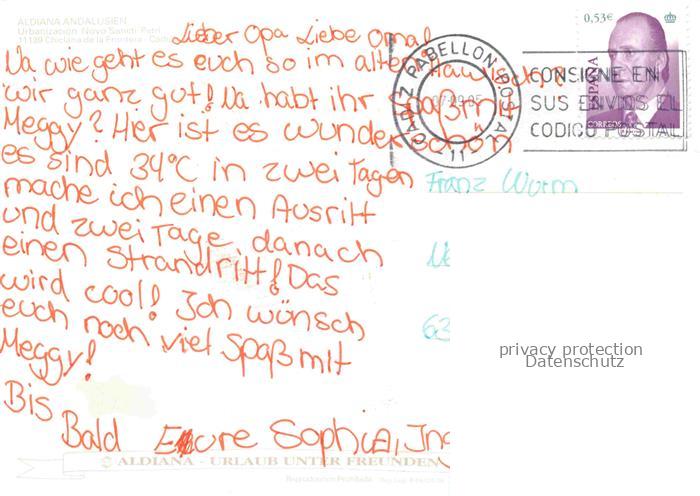 ALDIANA ANDALUSIEN
Urbanización Novo Sancti Petri
11139 Chiclana de la Frontera
Lieber Opa Liebe Oma!
Na wie geht es euch so im alten
wir ganz gut! Na habt ihr Spaß mit
Meggy? Hier ist es wunderschön
es sind 34°C in zwei Tagen
mache ich einen Ausritt
und zwei Tage danach
einen Strandritt! Das
wird cool! Ich wünsch
euch noch viel Spaß mit
Meggy!
Bis
Bald Eure Sophia, Ing
ALDIANA - URLAUB UNTER FREUNDEN
Reproducción Prohibida
0,53€
ESPAÑA
CORREOS
CADIZ PABELLON POSTAL
11
CONSIGNE EN
SUS ENVIOS EL
CODIGO POSTAL
Franz Wurm
63
privacy protection
Datenschutz